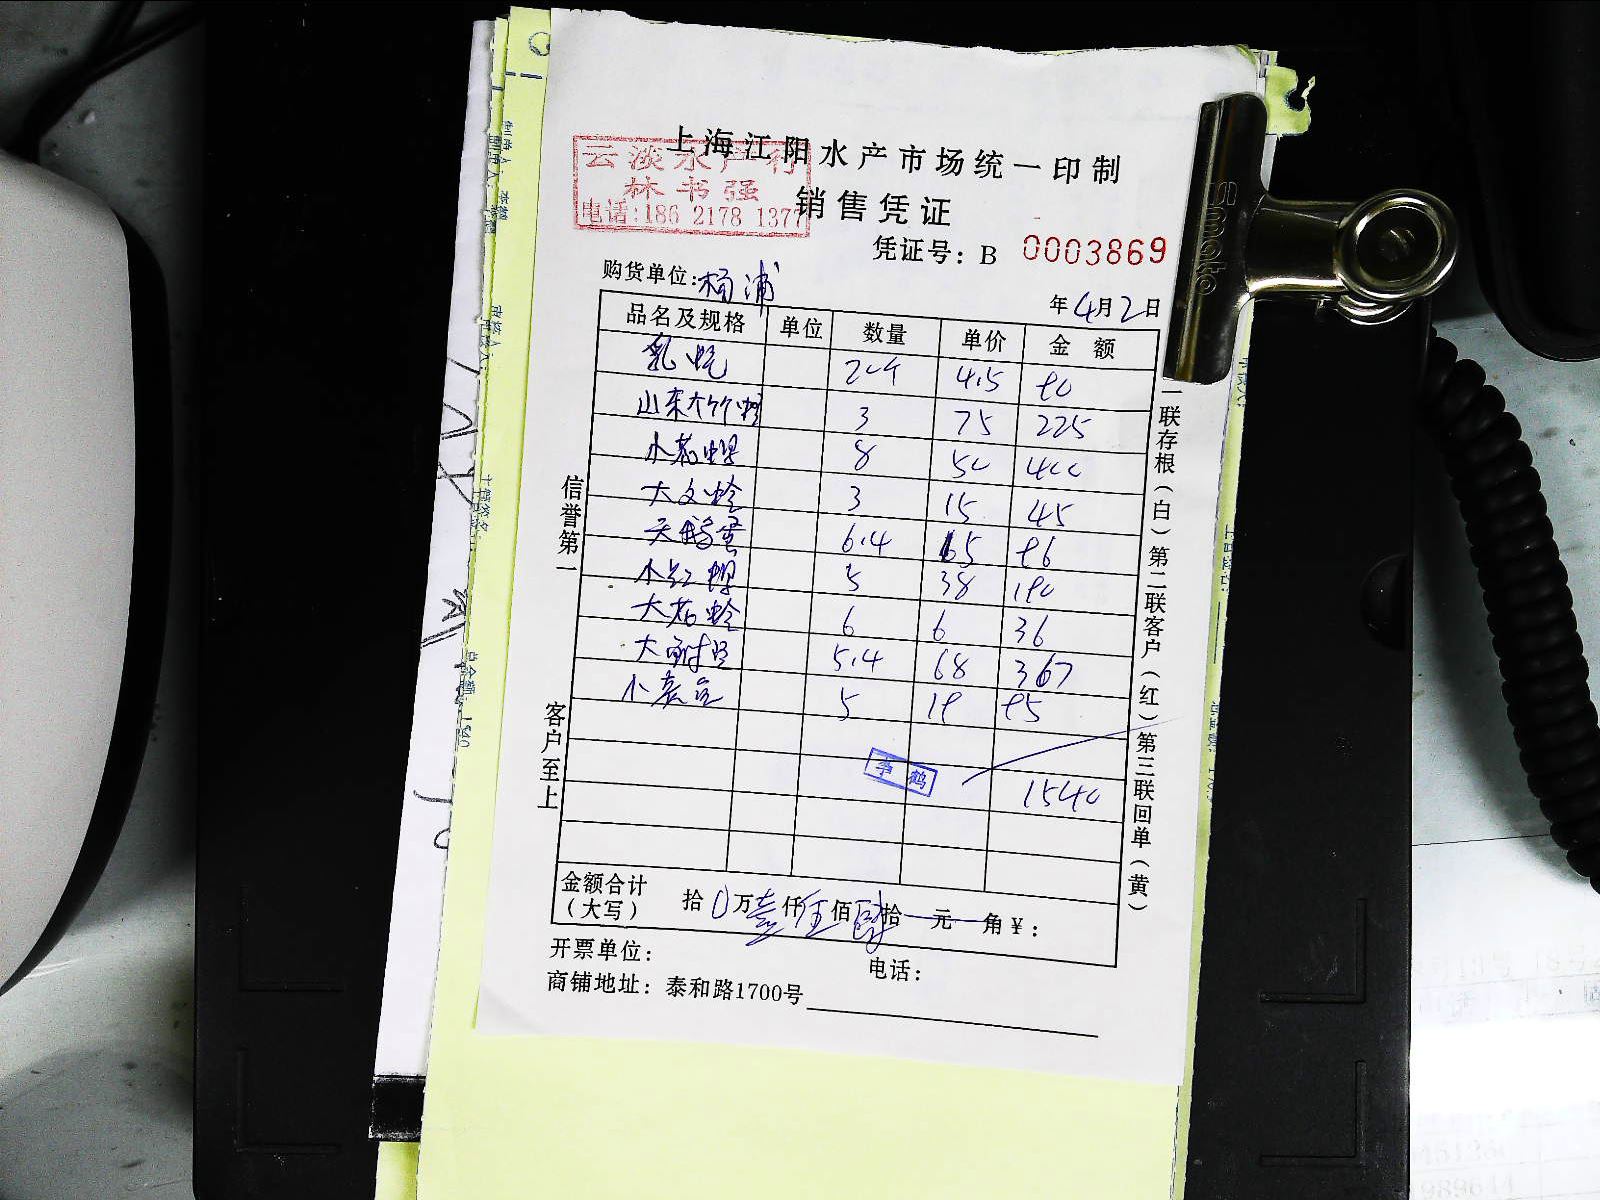 上海江阳水产市场统一印制
云淡水产行
林书强
电话:186 2178 1377
销售凭证
凭证号: B 0003869
购货单位: 杨浦
年4月2日
品名及规格 单位 数量 单价 金额
4.5 90
山东大竹蛏 3 75 225
小花螺 8 50 400
大文蛤 3 15 45
天鹅蛋 6.4 15 96
小红螺 5 38 190
大花蛤 6 6 36
大鲜贝 5.4 68 367
5 19 95
1540
金额合计(大写) 拾0万壹仟伍佰肆拾 元 角¥:
开票单位: 电话:
商铺地址: 泰和路1700号
信誉第一
客户至上
一联存根(白)第二联客户(红)第三联回单(黄)
Smate